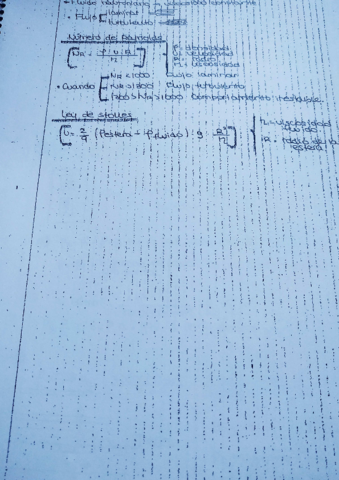 • Flujo [ laminar
turbulento
Número de Reynolds
[NR = ρ · v · R / η]
ρ = densidad
v = velocidad
R = radio
η = viscosidad
• Cuando [ NR < 1000 Flujo laminar
NR > 1500 Flujo turbulento
1500 > NR > 1000 Comportamiento inestable
Ley de stokes
[v = 2/9 (ρesfera - ρfluido) · g · R²/η]
η = viscosidad fluido
R = radio de la esfera